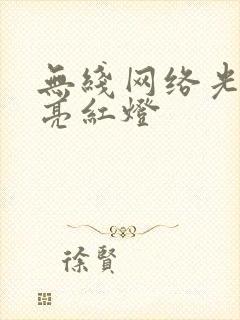 無綫网络光
亮紅燈
徐賢